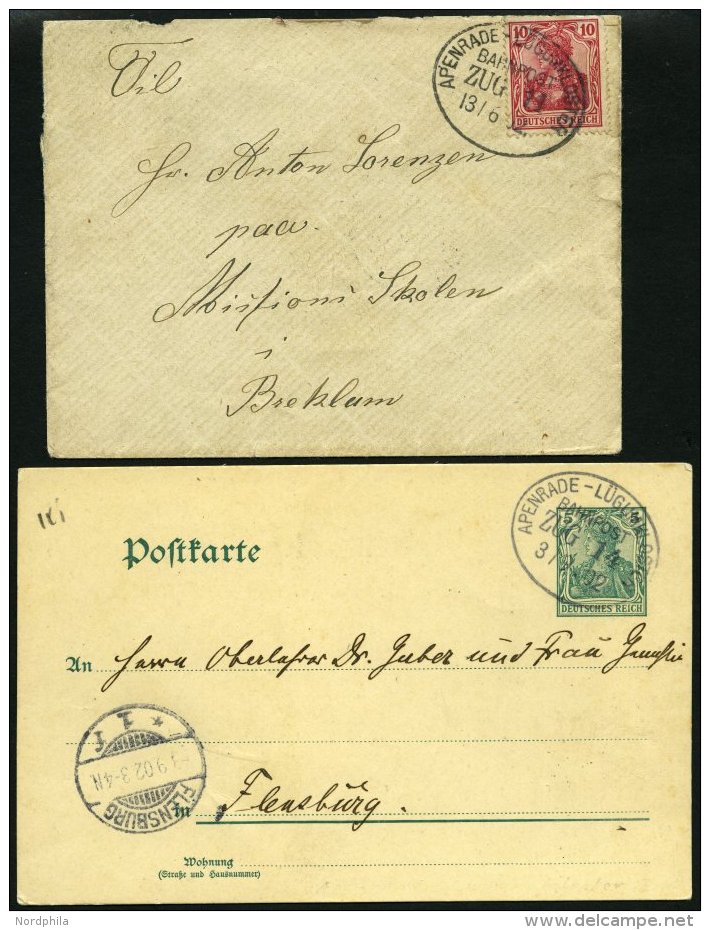 Til
Hr. Anton Lorenzen
paa
Missions Skolen
i
Breklum
APENRADE - LÜGUMKLOSTER
BAHNPOST
ZUG
13/6
10 10
DEUTSCHES REICH
Postkarte
APENRADE - LÜGUMKLOSTER
BAHNPOST
ZUG 14
02
5
DEUTSCHES REICH
An Herrn Oberlehrer Dr. Huber und Frau
FLENSBURG
9.02.3-4N.
* 1 f
in Flensburg.
Wohnung
(Straße und Hausnummer)
Nordphila
delcampe.net